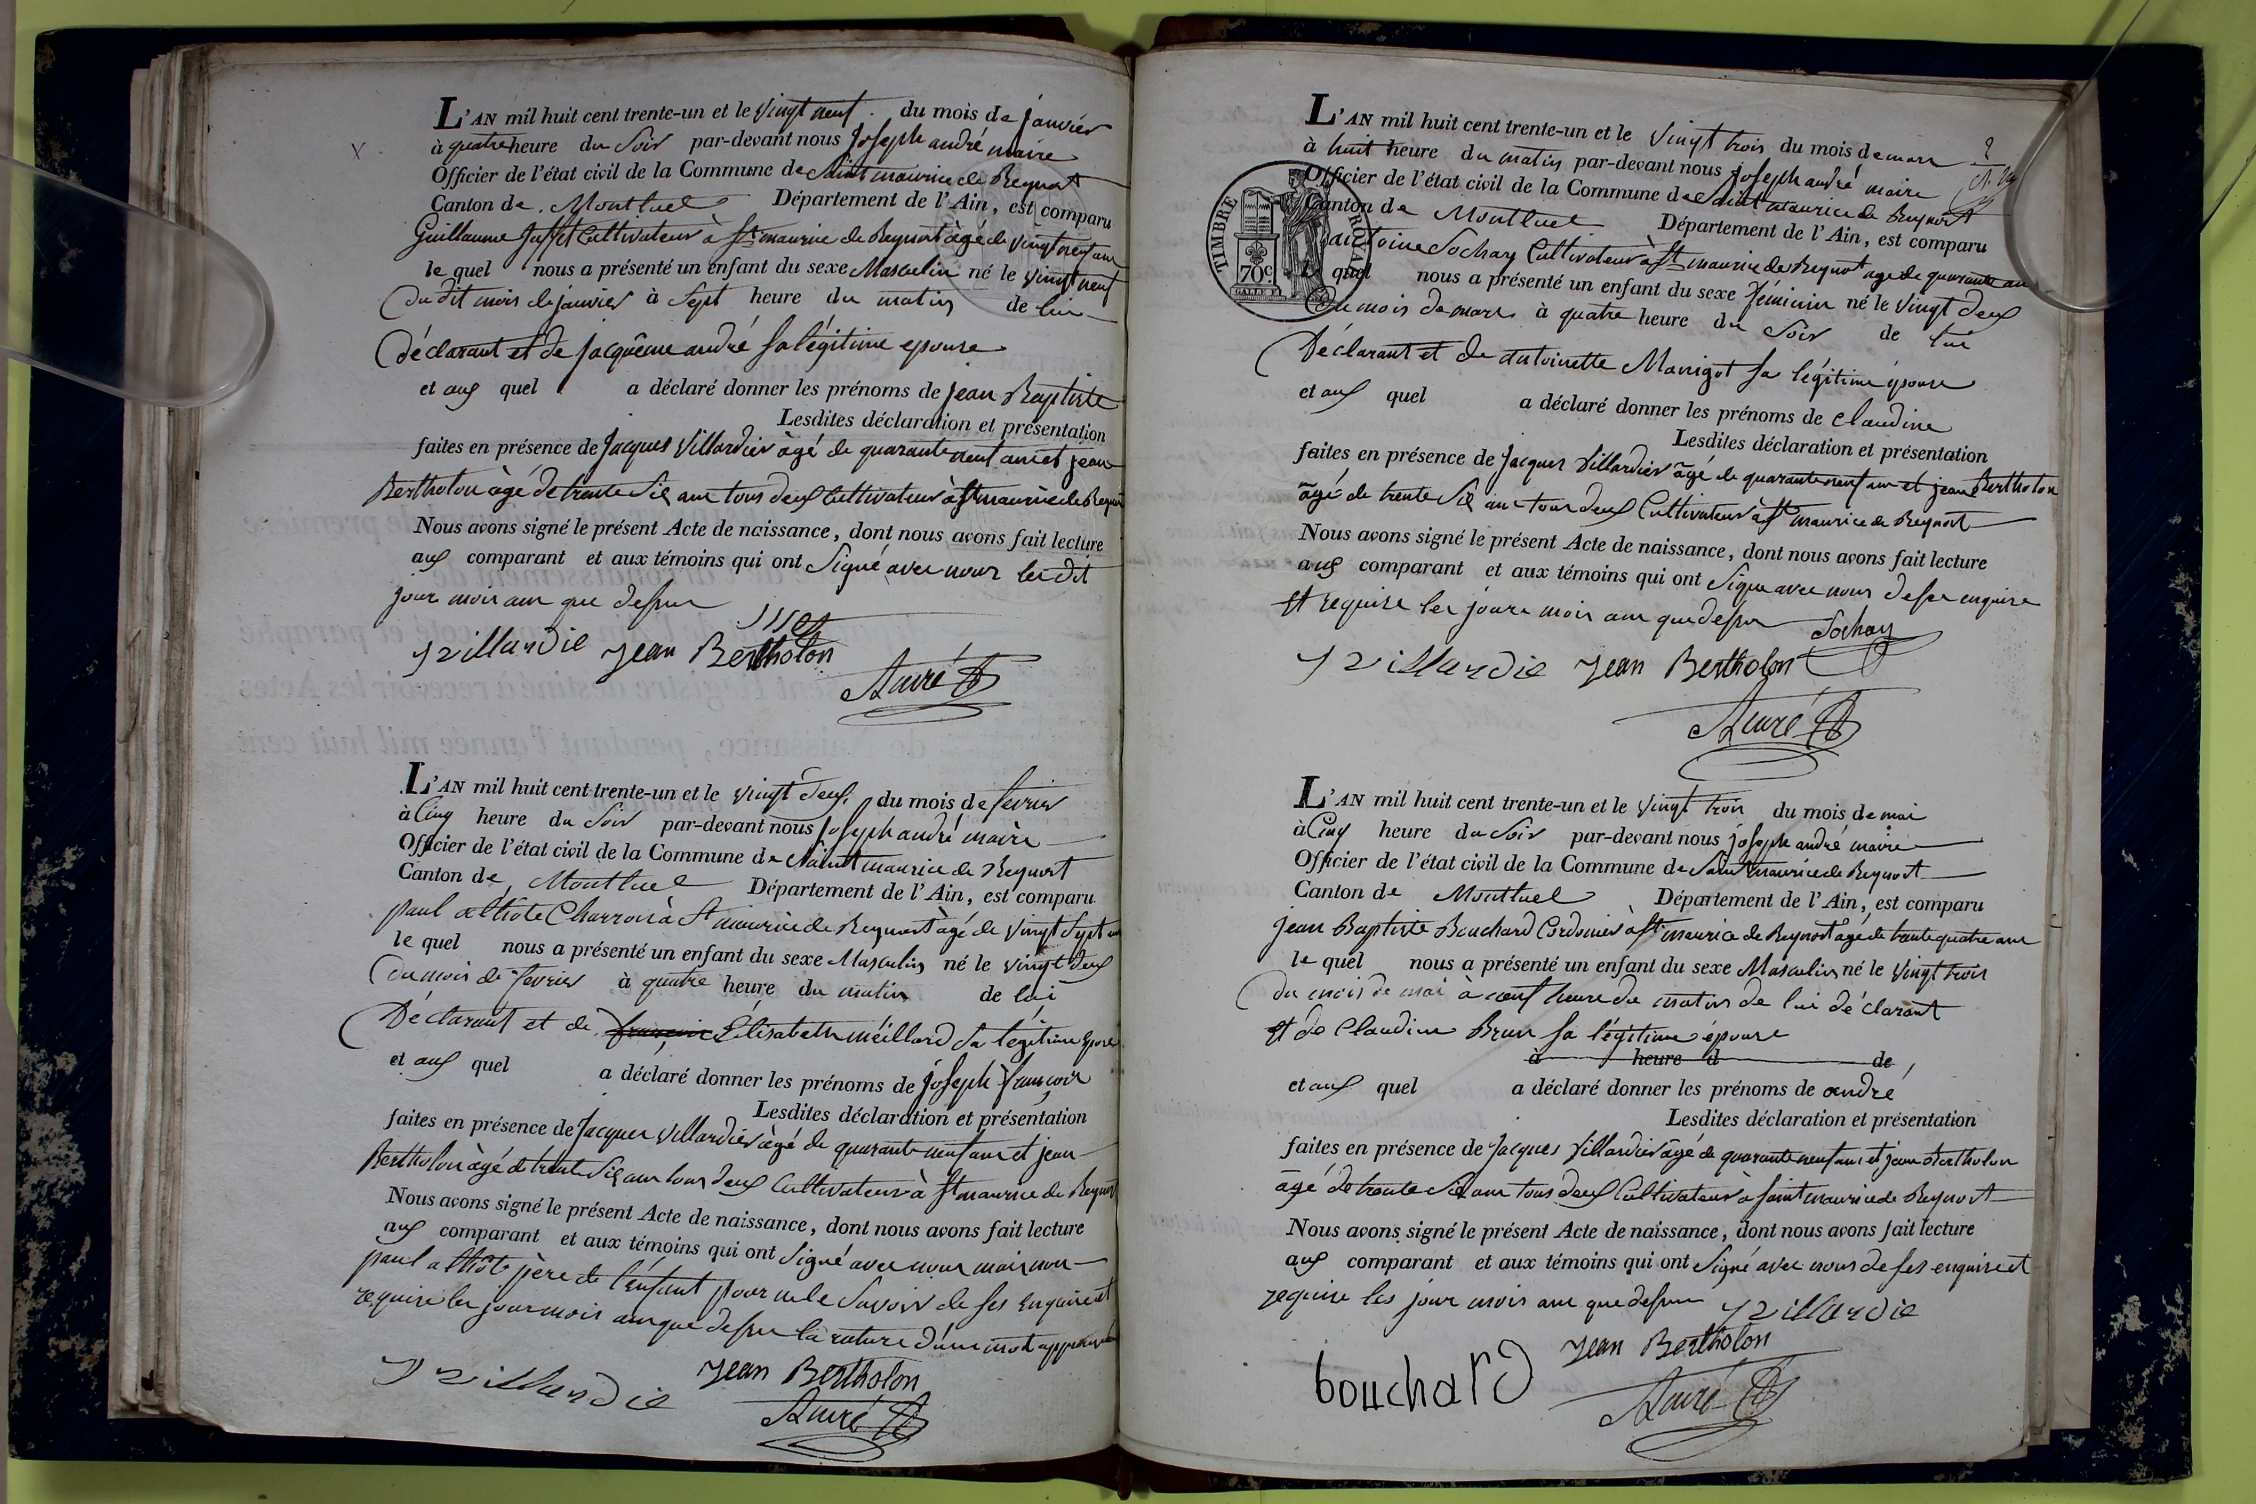 L'AN mil huit cent trente-un et le vingt neuf du mois de janvier
à quatre heure du Soir par-devant nous Joseph andré maire
Officier de l'état civil de la Commune de Saint maurice de Beynost
Canton de Montluel Département de l'Ain, est comparu
Guillaume Cultivateur à St maurice de Beynost âgé de vingt neuf ans
le quel nous a présenté un enfant du sexe Masculin né le vingt neuf
Du dit mois de janvier à Sept heure du matin de lui
Déclarant et de Jacqueme andré sa légitime epouse
et aux quel a déclaré donner les prénoms de jean Baptiste
Lesdites déclaration et présentation
faites en présence de Jacques Villardier âgé de quarante neuf ans et jean
Bertholon âgé de trente Six ans tous deux Cultivateur à St maurice de Beynost
Nous avons signé le présent Acte de naissance, dont nous avons fait lecture
aux comparant et aux témoins qui ont Signé avec nous les dit
jour mois an que dessus
J villardie Jean Bertholon
André
L'AN mil huit cent trente-un et le vingt deux du mois de fevrier
à Cinq heure du Soir par-devant nous Joseph andré maire
Officier de l'état civil de la Commune de Saint maurice de Beynost
Canton de Montluel Département de l'Ain, est comparu
paul althote Charron à St maurice de Beynost âgé de vingt Sept ans
le quel nous a présenté un enfant du sexe Masculin né le vingt deux
Du mois de fevrier à quatre heure du matin de lui
Déclarant et de Elisabeth méillard Sa légitime Epouse
et aux quel a déclaré donner les prénoms de joseph françois
Lesdites déclaration et présentation
faites en présence de Jacques Villardier âgé de quarante neuf ans et jean
Bertholon âgé de trente Six ans tous deux Cultivateur à St maurice de Beynost
Nous avons signé le présent Acte de naissance, dont nous avons fait lecture
aux comparant et aux témoins qui ont Signé avec nous mais non
paul althôte père de l'enfant pour ne le Savoir de ses Enquire et
require les jour mois an que dessus la rature d'un mot approuvée
J villardie Jean Bertholon
André
L'AN mil huit cent trente-un et le vingt trois du mois de mars
à huit heure du matin par-devant nous joseph andré maire
Officier de l'état civil de la Commune de Saint maurice de Beynost
Canton de Montluel Département de l'Ain, est comparu
antoine Sochay Cultivateur à St maurice de Beynost age de quarante ans
le quel nous a présenté un enfant du sexe féminin né le vingt deux
Du mois de mars à quatre heure du Soir de lui
Déclarant et de antoinette Manigot sa légitime épouse
et aux quel a déclaré donner les prénoms de claudine
Lesdites déclaration et présentation
faites en présence de Jacques Villardier âgé de quarante neuf ans et jean Bertholon
âgé de trente Six ans tous deux Cultivateur à St maurice de Beynost
Nous avons signé le présent Acte de naissance, dont nous avons fait lecture
aux comparant et aux témoins qui ont Signe avec nous de ses enquire
et require les jours mois an que dessus Sochay
J villardie Jean Bertholon
André
TIMBRE ROYAL
70c
L'AN mil huit cent trente-un et le vingt trois du mois de mai
à Cinq heure du Soir par-devant nous joseph andré maire
Officier de l'état civil de la Commune de Saint maurice de Beynost
Canton de Montluel Département de l'Ain, est comparu
jean Baptiste Bouchard Cordonier à St maurice de Beynost âgé de trente quatre ans
le quel nous a présenté un enfant du sexe Masculin né le vingt trois
du mois de mai à neuf heure du matin de lui déclarant
et de Claudine Brun sa légitime épouse
à heure d de
et aux quel a déclaré donner les prénoms de andré
Lesdites déclaration et présentation
faites en présence de Jacques Villardier âgé de quarante neuf ans et jean Bertholon
âgé de trente Six ans tous deux Cultivateur à saint maurice de Beynost
Nous avons signé le présent Acte de naissance, dont nous avons fait lecture
aux comparant et aux témoins qui ont Signé avec nous de ses enquire et
require les jour mois an que dessus J villardie
Jean Bertholon
bouchard André